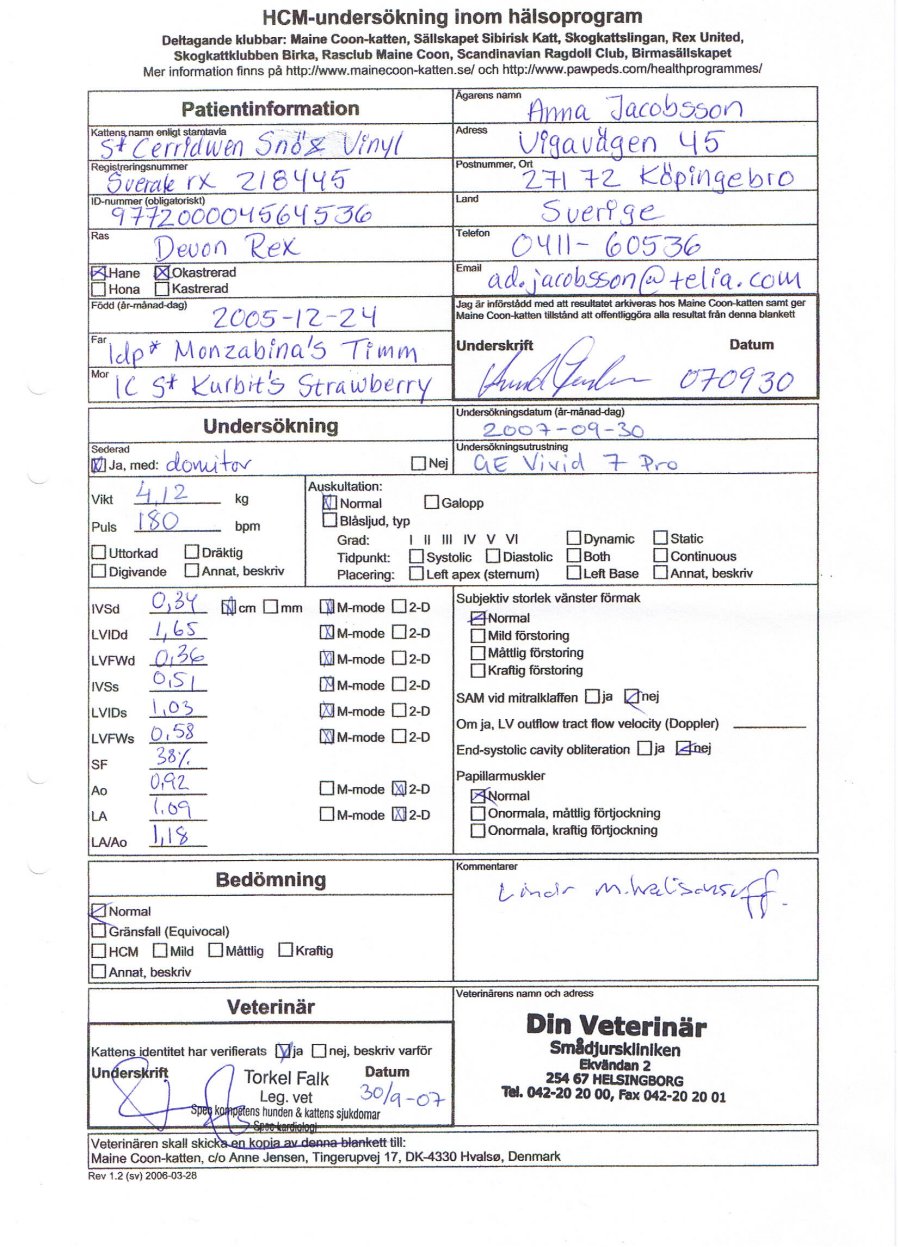 HCM-undersökning inom hälsoprogram
Deltagande klubbar: Maine Coon-katten, Sällskapet Sibirisk Katt, Skogkattslingan, Rex United,
Skogkattklubben Birka, Rasclub Maine Coon, Scandinavian Ragdoll Club, Birmasällskapet
Mer information finns på http://www.mainecoon-katten.se/ och http://www.pawpeds.com/healthprogrammes/
Patientinformation
Kattens namn enligt stamtavla
St Cerridwen Snö& Vinyl
Registreringsnummer
Sverak rx 218445
ID-nummer (obligatoriskt)
977200004564536
Ras
Devon Rex
Hane Okastrerad
Hona Kastrerad
Född (år-månad-dag)
2005-12-24
Far
Idp* Monzabina's Timm
Mor
IC St Kurbit's Strawberry
Ägarens namn
Anna Jacobsson
Adress
Vigavägen 45
Postnummer, Ort
271 72 Köpingebro
Land
Sverige
Telefon
0411-60536
Email
ad.jacobsson@telia.com
Jag är införstådd med att resultatet arkiveras hos Maine Coon-katten samt ger
Maine Coon-katten tillstånd att offentliggöra alla resultat från denna blankett
Underskrift Datum
070930
Undersökning
Undersökningsdatum (år-månad-dag)
2007-09-30
Sederad
Ja, med: domitor Nej
Undersökningsutrustning
GE Vivid 7 Pro
Vikt 4,12 kg
Puls 180 bpm
Uttorkad Dräktig
Digivande Annat, beskriv
Auskultation:
Normal Galopp
Blåsljud, typ
Grad: I II III IV V VI Dynamic Static
Tidpunkt: Systolic Diastolic Both Continuous
Placering: Left apex (sternum) Left Base Annat, beskriv
IVSd 0,34 cm mm M-mode 2-D
LVIDd 1,65 M-mode 2-D
LVFWd 0,36 M-mode 2-D
IVSs 0,51 M-mode 2-D
LVIDs 1,03 M-mode 2-D
LVFWs 0,58 M-mode 2-D
SF 38%
Ao 0,92 M-mode 2-D
LA 1.09 M-mode 2-D
LA/Ao 1,18
Subjektiv storlek vänster förmak
Normal
Mild förstoring
Måttlig förstoring
Kraftig förstoring
SAM vid mitralklaffen ja nej
Om ja, LV outflow tract flow velocity (Doppler)
End-systolic cavity obliteration ja nej
Papillarmuskler
Normal
Onormala, måttlig förtjockning
Onormala, kraftig förtjockning
Bedömning
Normal
Gränsfall (Equivocal)
HCM Mild Måttlig Kraftig
Annat, beskriv
Kommentarer
Veterinär
Kattens identitet har verifierats ja nej, beskriv varför
Underskrift Datum
Torkel Falk
Leg. vet
30/9-07
Spec kompetens hunden & kattens sjukdomar
Spec kardiologi
Veterinärens namn och adress
Din Veterinär
Smådjurskliniken
Ekvändan 2
254 67 HELSINGBORG
Tel. 042-20 20 00, Fax 042-20 20 01
Veterinären skall skicka en kopia av denna blankett till:
Maine Coon-katten, c/o Anne Jensen, Tingerupvej 17, DK-4330 Hvalsø, Denmark
Rev 1.2 (sv) 2006-03-28